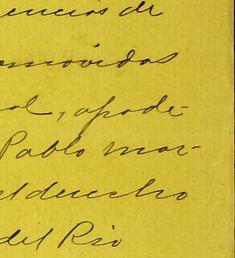 encias de
omovidas
al, apode-
Pablo mar-
el derecho
del Rio